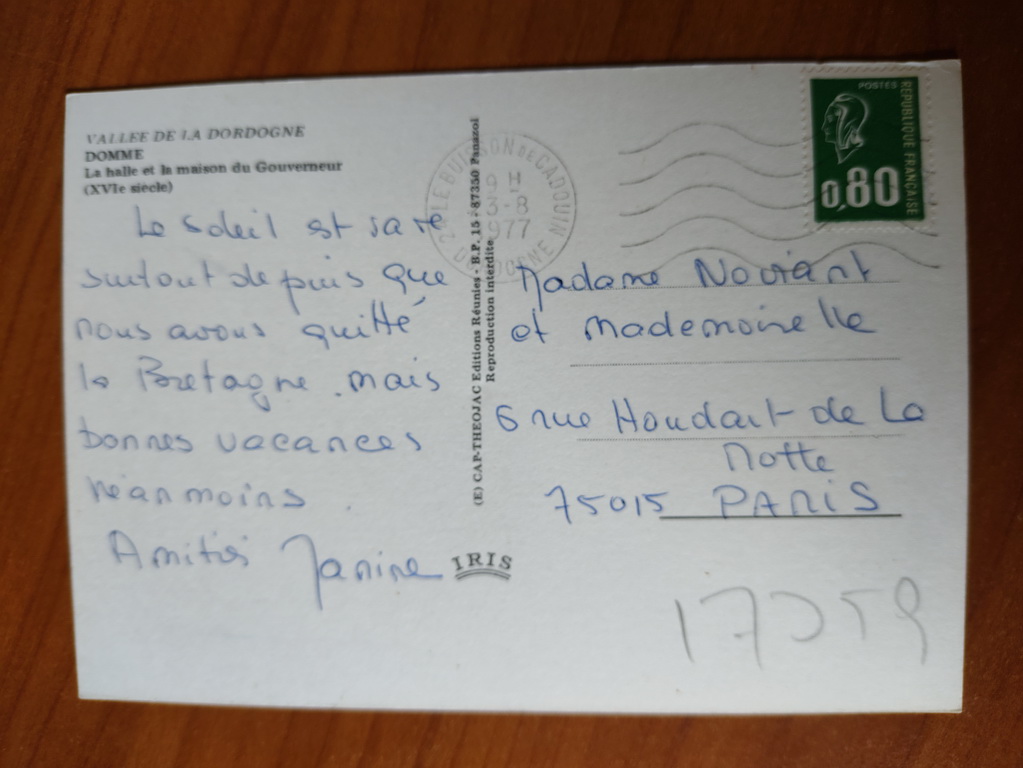 VALLEE DE LA DORDOGNE
DOMME
La halle et la maison du Gouverneur
(XVIe siècle)
Le soleil est rare
surtout depuis que
nous avons quitté
la Bretagne. mais
bonnes vacances
néanmoins.
Amitiés Janine
(E) CAP-THEOJAC Editions Réunies - B.P. 15 - 87350 Panazol
Reproduction interdite
IRIS
24 LE BUISSON DE CADOUIN
9 H
3-8
1977
DORDOGNE
POSTES
REPUBLIQUE FRANÇAISE
0,80
Madame Noviant
et Mademoiselle
6 rue Houdart de La
Motte
75015 PARIS
17259